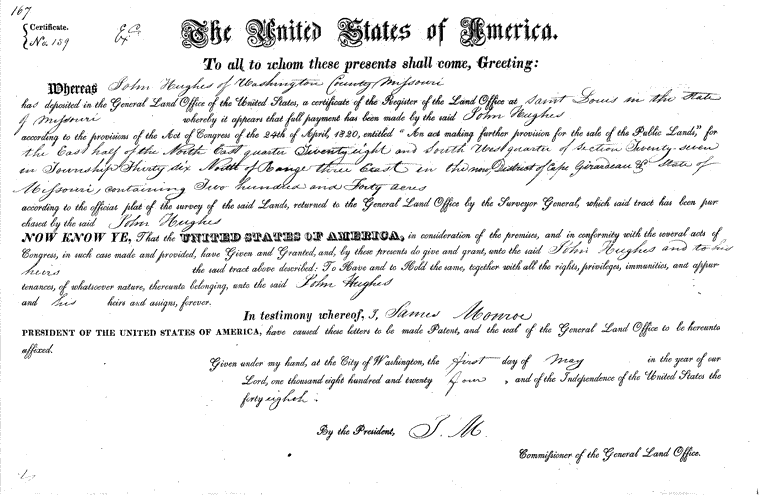 167
Certificate.
No. 139
Ex C.
The United States of America.
To all to whom these presents shall come, Greeting:
Whereas John Hughes of Washington County Missouri
has deposited in the General Land Office of the United States, a certificate of the Register of the Land Office at Saint Louis in the State
of Missouri whereby it appears that full payment has been made by the said John Hughes
according to the provisions of the Act of Congress of the 24th of April, 1820, entitled "An act making further provision for the sale of the Public Lands," for
the East half of the North East quarter Twenty eight and South West quarter of Section Twenty seven
in Township Thirty six North of Range three East in the now District of Cape Girardeau & State of
Missouri containing Two hundred and Forty acres
according to the official plat of the survey of the said Lands, returned to the General Land Office by the Surveyor General, which said tract has been pur
chased by the said John Hughes
NOW KNOW YE, That the UNITED STATES OF AMERICA, in consideration of the premises, and in conformity with the several acts of
Congress, in such case made and provided, have Given and Granted, and, by these presents do give and grant, unto the said John Hughes and to his
heirs the said tract above described: To Have and to Hold the same, together with all the rights, privileges, immunities, and appur
tenances, of whatsoever nature, thereunto belonging, unto the said John Hughes
and his heirs and assigns, forever.
In testimony whereof, I, James Monroe
PRESIDENT OF THE UNITED STATES OF AMERICA, have caused these letters to be made Patent, and the seal of the General Land Office to be hereunto
affixed.
Given under my hand, at the City of Washington, the first day of May in the year of our
Lord, one thousand eight hundred and twenty four, and of the Independence of the United States the
forty eighth.
By the President, J. M.
Commissioner of the General Land Office.